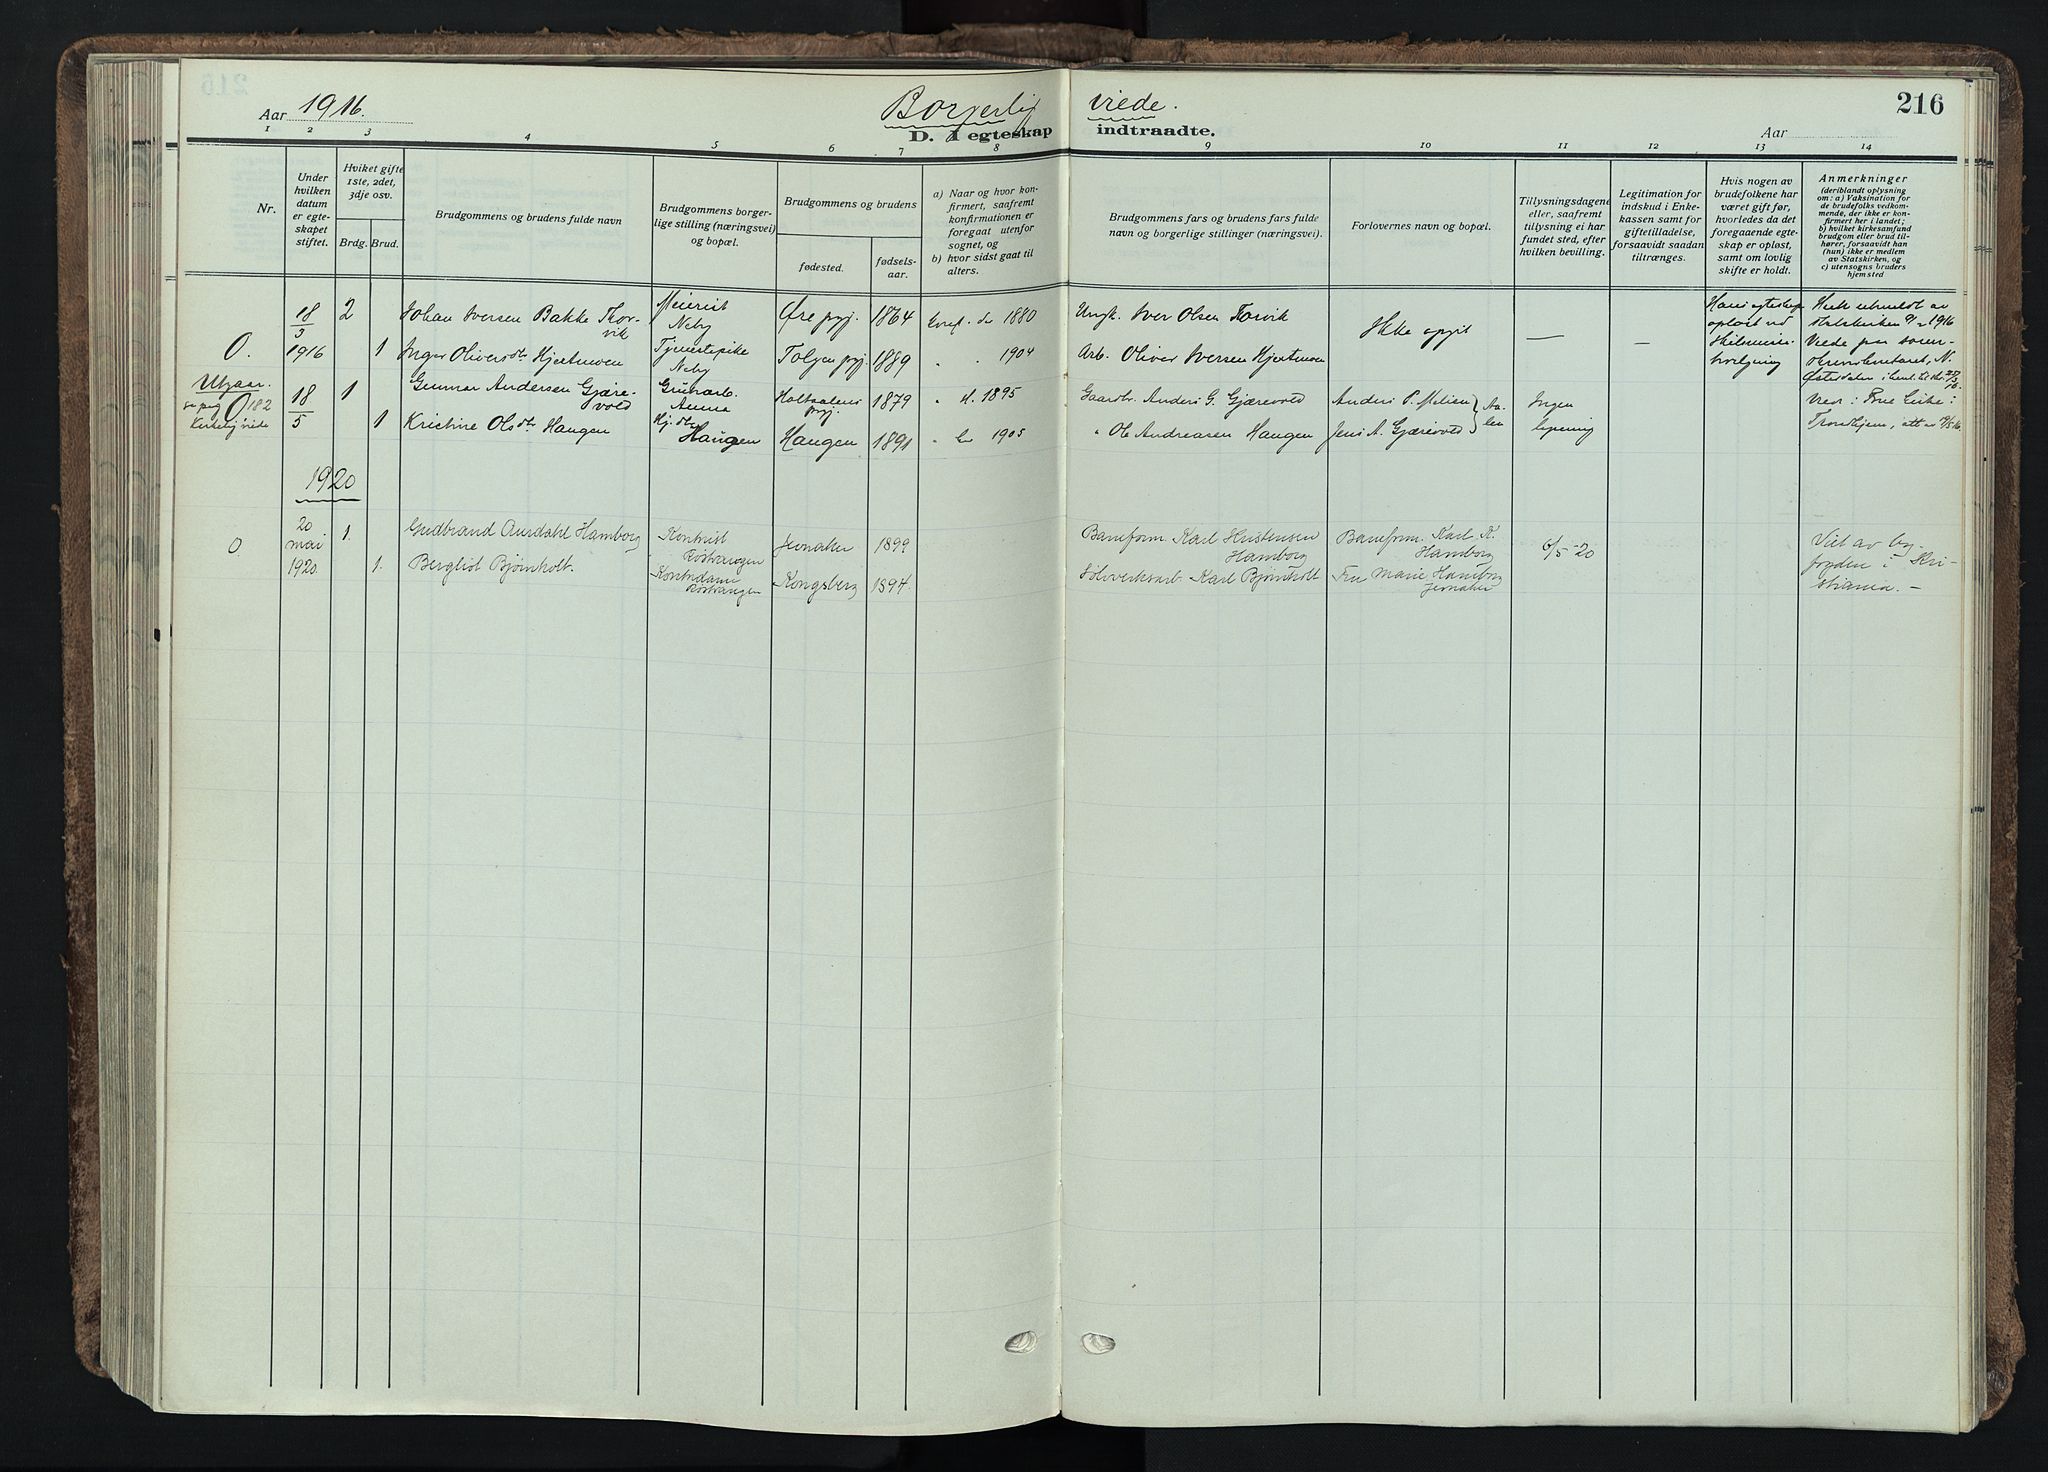 Aar 1916.
Borgerlig viede.
D. I egteskap indtraadte.
Aar
216
1 2 3 4 5 6 7 8 9 10 11 12 13 14
Nr.
Under
hvilken
datum
er egte-
skapet
stiftet.
Hvilket gifte
1ste, 2det,
3dje osv.
Brdg. Brud.
Brudgommens og brudens fulde navn
Brudgommens borger-
lige stilling (næringsvei)
og bopæl.
Brudgommens og brudens
fødested.
fødsels-
aar.
a) Naar og hvor kon-
firmert, saafremt
konfirmationen er
foregaat utenfor
sognet, og
b) hvor sidst gaat til
alters.
Brudgommens fars og brudens fars fulde
navn og borgerlige stillinger (næringsvei).
Forlovernes navn og bopæl.
Tillysningsdagene
eller, saafremt
tillysning ei har
fundet sted, efter
hvilken bevilling.
Legitimation for
indskud i Enke-
kassen samt for
giftetilladelse,
forsaavidt saadan
tiltrænges.
Hvis nogen av
brudefolkene har
været gift før,
hvorledes da det
foregaaende egte-
skap er opløst,
samt om lovlig
skifte er holdt.
Anmerkninger
(deriblandt oplysning
om: a) Vaksination for
de brudefolks vedkom-
mende, der ikke er kon-
firmert her i landet;
b) hvilket kirkesamfund
brudgom eller brud til-
hører, forsaavidt han
(hun) ikke er medlem
av Statskirken, og
c) utensogns bruders
hjemsted
18/3 1916 2 Johan Iversen Bakke Thor-
vik Meierist Neby Øre prgj. 1864 1880 Ungk. Iver Olsen Torvik Ikke opgit — —
O. 1 Inger Oliversdtr Hjertmoen Tjenestepike Neby Tolgen prgj. 1889 " 1904 Arb. Oliver Iversen Hjertmoen
Hans egteskap
opløst ved
Skilsmisse-
bevilgning
Viede paa soren-
N.
Østerdalen
Utgaar.
se pag 182
Kirkelig viede
O 18/5 1 Gunnar Andersen Gjære-
vold Grubearb. Holtaalens prgj. 1879 " 1895 Gaardbr. Anders G. Gjærevold Anders P. Ingen
lysning
1 Kristine Olsdtr Haugen Haugen Haugen 1891 " 1905 " Ole Andreasen Haugen Jens A. Gjærevold Aa-
len
Viet i Frue kirke i
Trondhjem,
1920
O. 20
mai
1920. 1. Gudbrand Aurdahl Hamborg Kontorist Jevnaker 1899 Baneform. Karl Kristensen
Hamborg Baneform. Karl K.
Hamborg 6/5-20 Viet av by-
fogden i Kri-
stiania. —
1. Bergliot Bjørnholt. Kontordame Kongsberg 1894. Sølvverksarb. Karl Bjørnholt Fru Marie Hamborg
Jevnaker